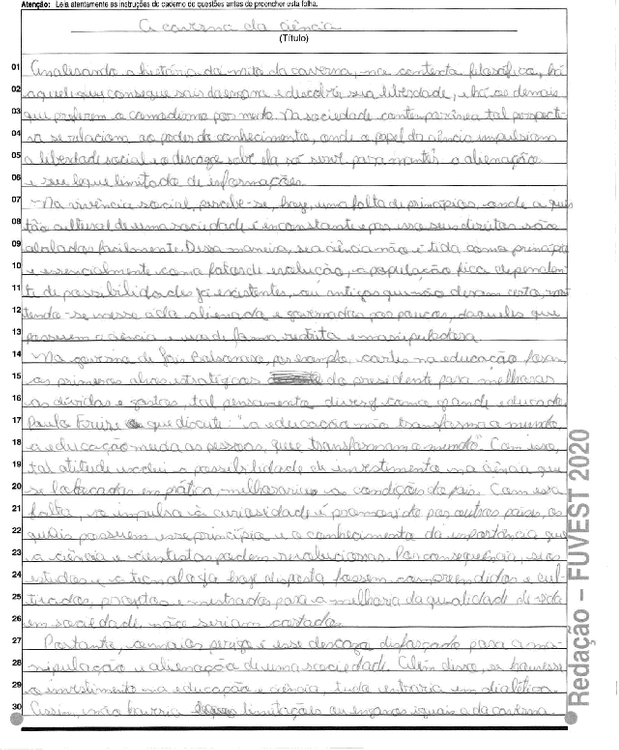 Atenção: Leia atentamente as instruções do caderno de questões antes de preencher esta folha.
A caverna da ciência
(Título)
01 Analisando a história do mito da caverna, no contexto filosófico, há
02 aquele que consegue sair da e descobrir sua liberdade, e há os demais
03 que preferem o comodismo por medo. Na sociedade contemporânea tal perspecti-
04 va se relaciona ao poder do conhecimento, onde o papel da ciência impulsiona
05 a liberdade social e o descaso sobre ela só serve para manter a alienação
06 e seu leque limitado de informações.
07 Na vivência social, percebe-se, hoje, uma falta de princípios, onde a ques
08 tão cultural de uma sociedade é inconstante e por isso seus direitos são
09 abalados facilmente. Dessa maneira, se a ciência não é tida como princípio
10 e essencialmente como fator de evolução, a população fica dependen
11 te de possibilidades já existentes, ou antigas que não deram certo, man
12 tendo-se nessa vida alienada e governada por poucos, daqueles que
13 possuem a ciência e usa de forma restrita e manipuladora.
14 No governo de Jair Bolsonaro, por exemplo, cortes na educação foram
15 os primeiros alvos estratégicos do presidente para melhorar
16 as dívidas e gastos, tal pensamento diverge com o grande educador
17 Paulo Freire que discute: "a educação não transforma o mundo
18 a educação muda as pessoas, que transformam o mundo". Com isso,
19 tal atitude exclui a possibilidade de investimento na ciência que
20 se colocadas em prática, melhoraria as condições do país. Com essa
21 falta, o impulso à curiosidade é promovido por outros países, os
22 quais possuem esse princípio e o conhecimento da importância que
23 a ciência e cientistas podem revolucionar. Por consequência, se os
24 estudos e a tecnologia hoje disposta fossem compreendidos e cul-
25 tivados, projetos e mestrados para a melhoria da qualidade de vida
26 em sociedade não seriam cortados.
27 Portanto, o maior perigo é esse descaso disfarçado para a ma-
28 nipulação e alienação de uma sociedade. Além disso, se houvesse
29 o investimento na educação e ciência, tudo entraria em dialética.
30 Assim, não haveria limitações ou enganos iguais a da caverna.
Redação – FUVEST 2020